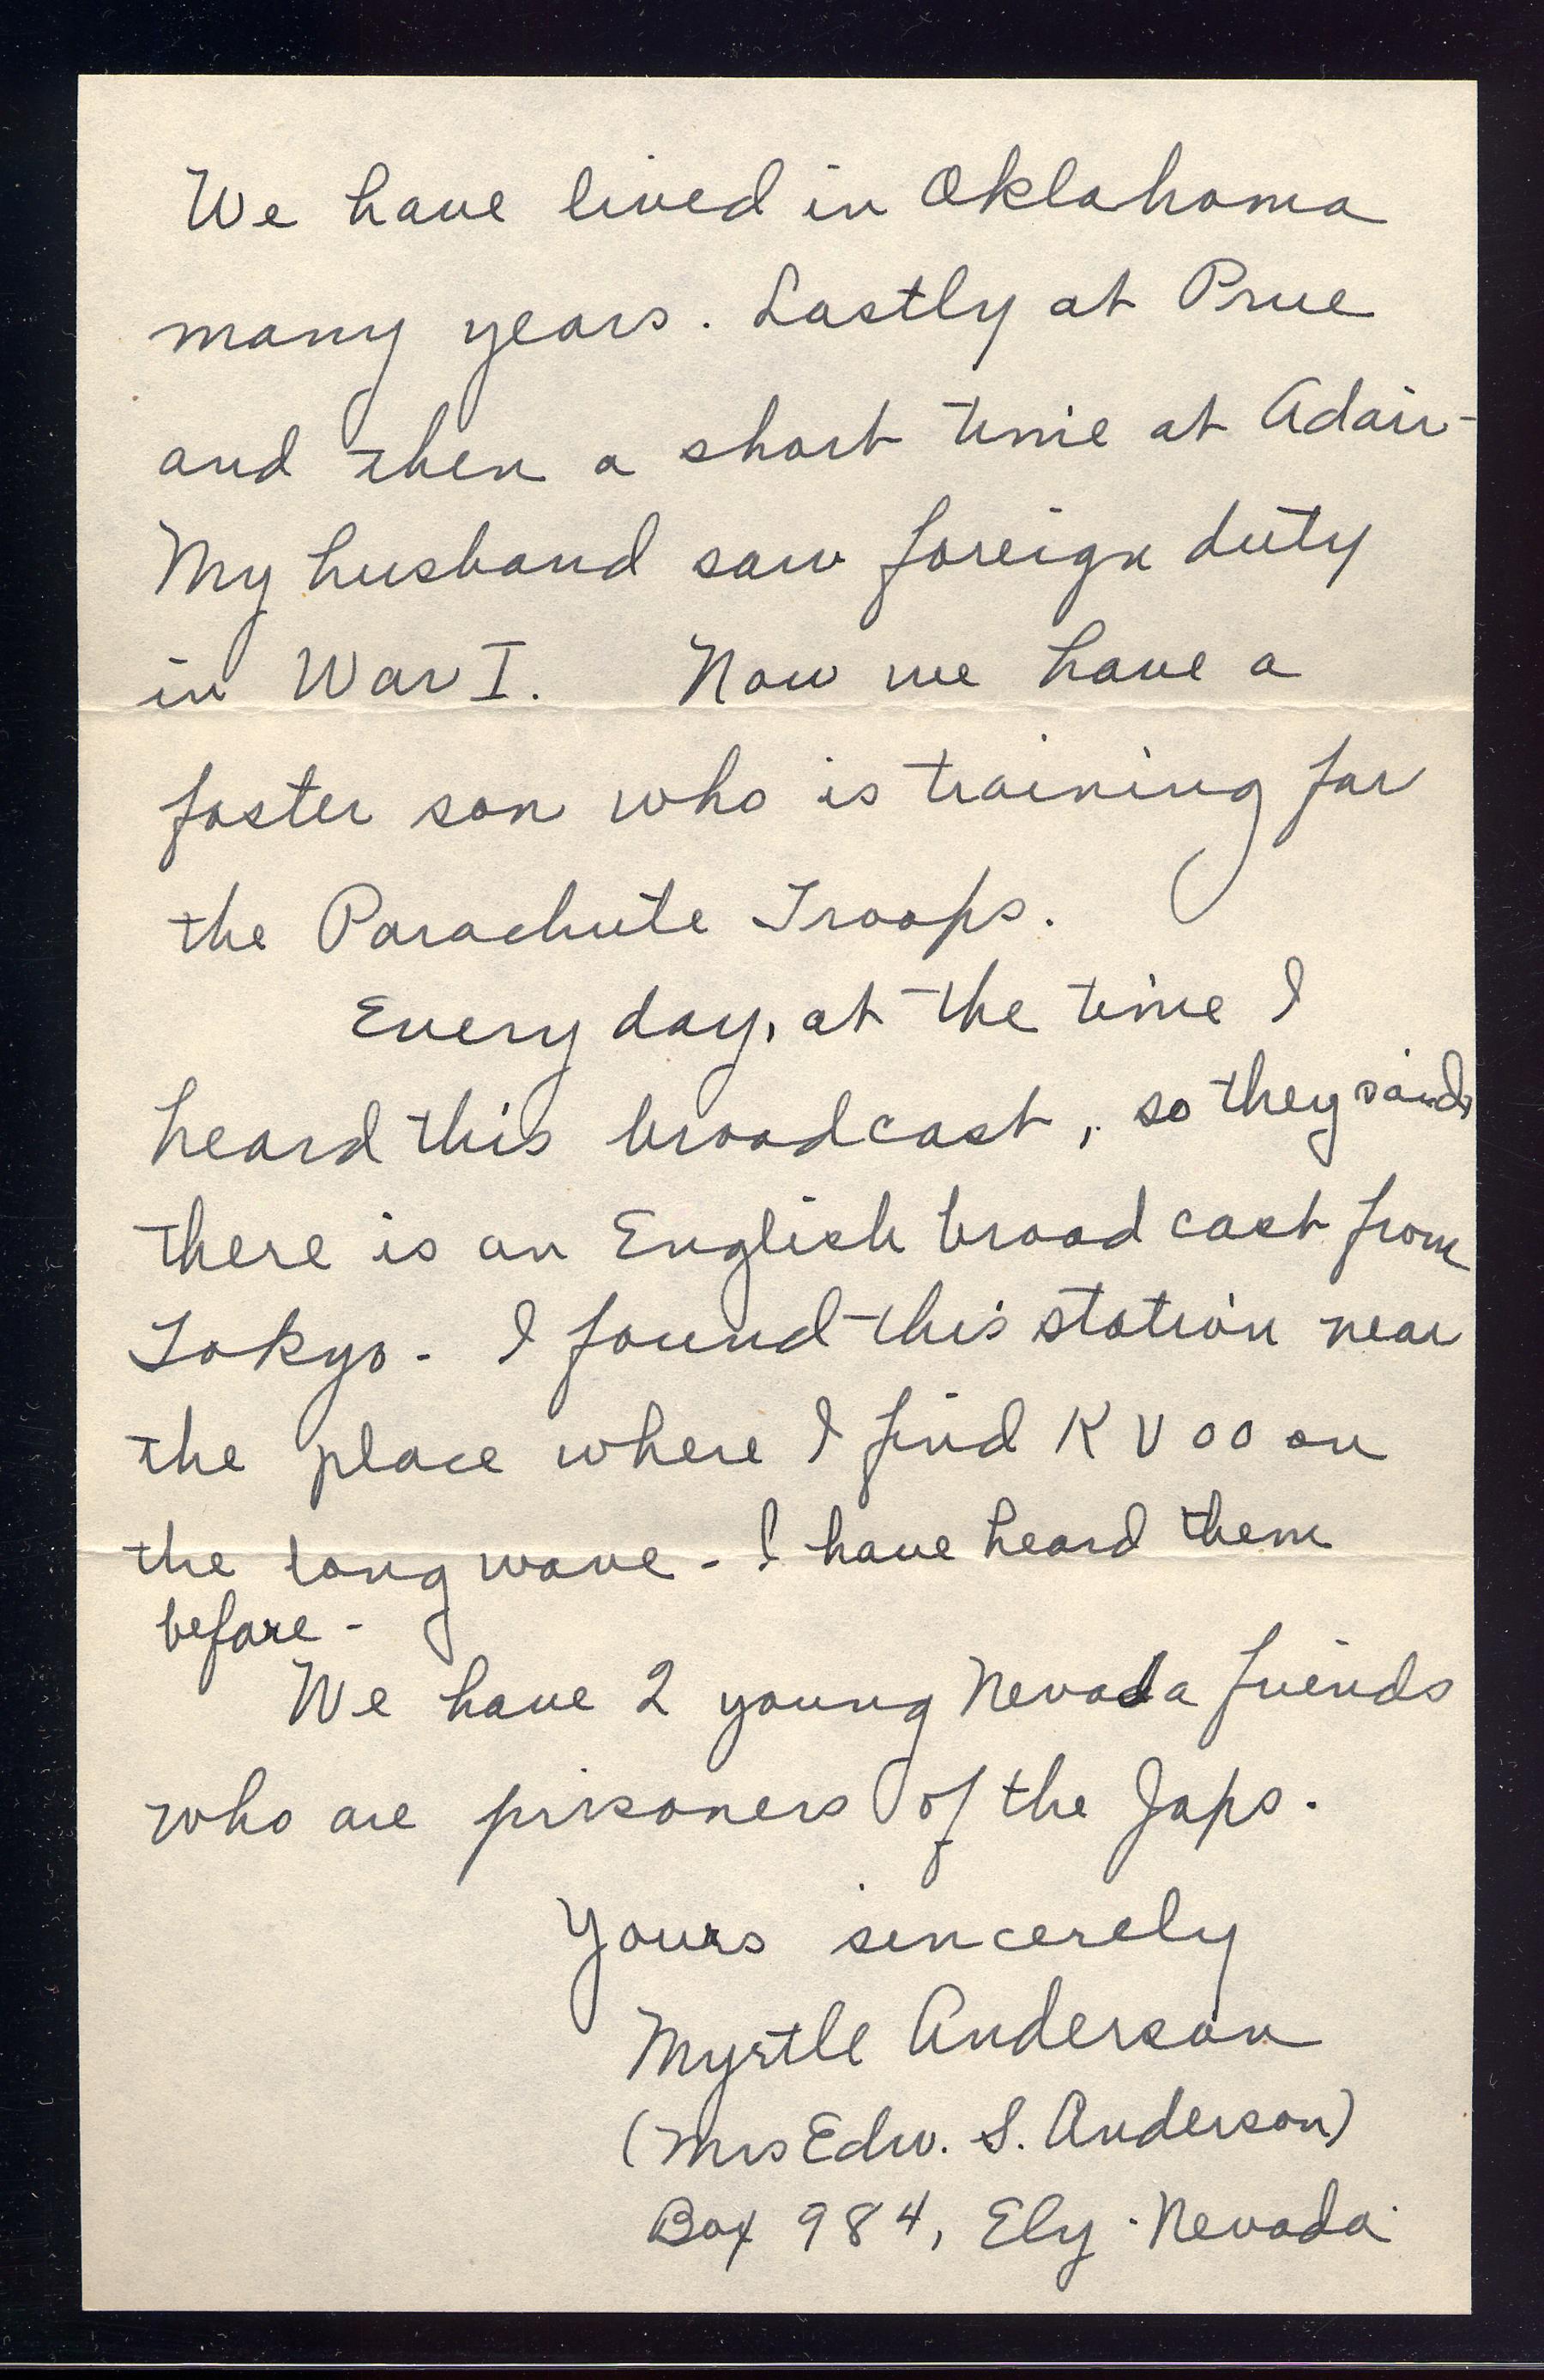 We have lived in Oklahoma
many years. Lastly at Prue
and then a short time at Adair-
My husband saw foreign duty
in War I. Now we have a
foster son who is training for
the Parachute Troops.
Every day, at the time I
heard this broadcast, so they said,
there is an English broad cast from
Tokyo - I found this station near
the place where I find KVOO on
the long wave - I have heard them
before -
We have 2 young Nevada friends
who are prisoners of the Japs.
Yours sincerely
Myrtle Anderson
(Mrs Edw. S. Anderson)
Box 984, Ely - Nevada